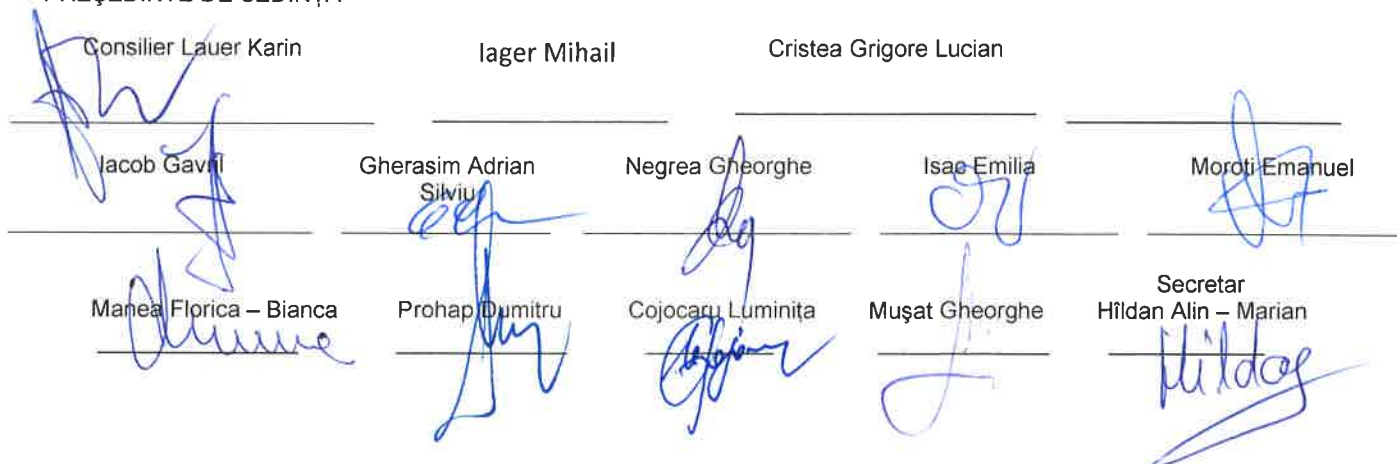 Consilier Lauer Karin Iager Mihail Cristea Grigore Lucian
Iacob Gavril Gherasim Adrian Negrea Gheorghe Isac Emilia Moroti Emanuel
Silviu
Secretar
Manea Florica – Bianca Prohap Dumitru Cojocaru Luminița Mușat Gheorghe Hîldan Alin – Marian